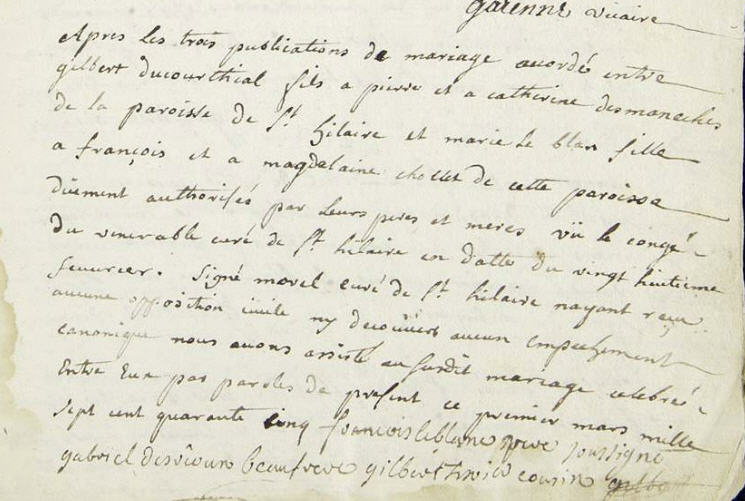 galenne vicaire
Apres les trois publications de mariage acordé entre
gilbert ducourthial fils a pierre et a catherine desmaneches
de la paroisse de St hilaire et marie le blan fille
a françois et a magdalaine chollet de cette paroisse
düement authorisés par leurs peres et meres vü le congé
du venerable curé de St hilaire en datte du vingt huitieme
fevurier. Signé morel curé de St hilaire nayant reçu
aucune opposition civile ny decouvert aucun empechement
canonique nous avons assisté au susdit mariage celebreé
Entre Eux par paroles de present ce premier mars mille
sept cent quarante cinq francois leblanc pere soussigné
gabriel beaufrere gilbert cousin